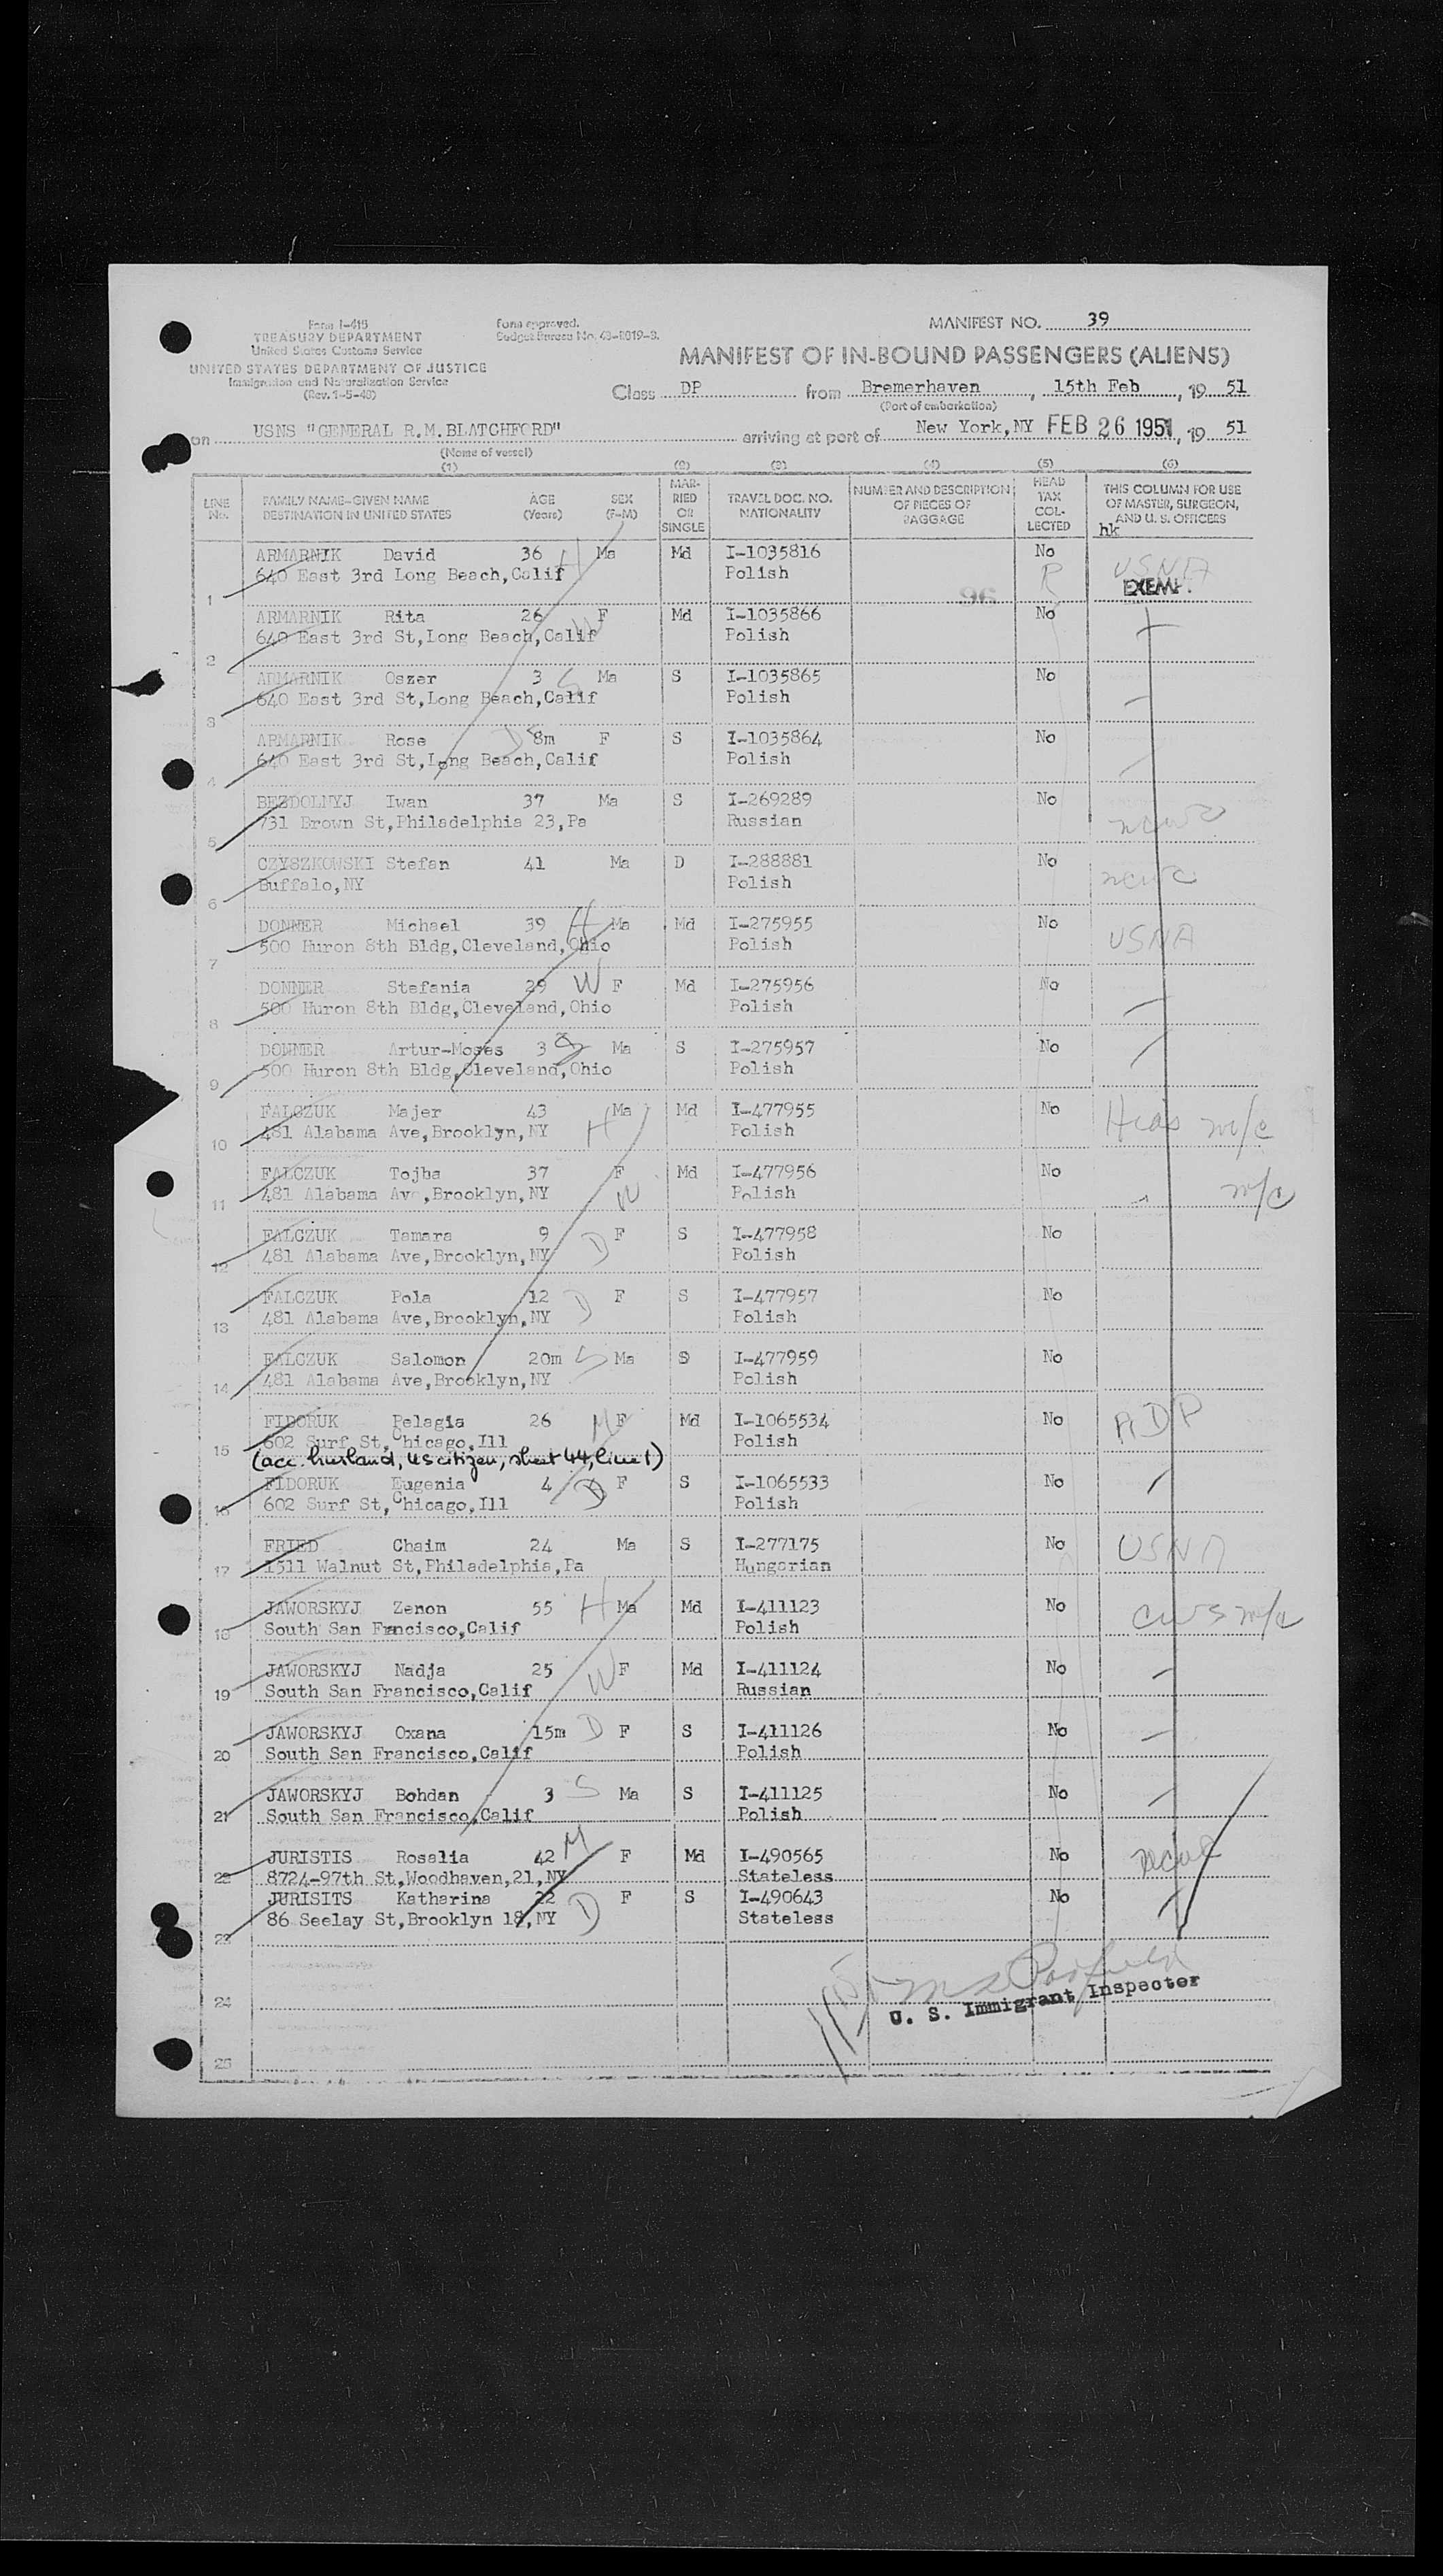 Form I-415
TREASURY DEPARTMENT
United States Customs Service
UNITED STATES DEPARTMENT OF JUSTICE
Immigration and Naturalization Service
(Rev. 1-5-48)
Form approved.
Budget Bureau No. 43-R019-3.
MANIFEST NO. 39
MANIFEST OF IN-BOUND PASSENGERS (ALIENS)
Class DP from Bremerhaven, 15th Feb, 19 51
(Port of embarkation)
on USNS "GENERAL R.M.BLATCHFORD" arriving at port of New York,NY FEB 26 1951, 19 51
(Name of vessel)
(1) (2) (3) (4) (5) (6)
LINE No. FAMILY NAME-GIVEN NAME DESTINATION IN UNITED STATES AGE (Years) SEX (F-M) MARRIED OR SINGLE TRAVEL DOC. NO. NATIONALITY NUMBER AND DESCRIPTION OF PIECES OF BAGGAGE HEAD TAX COLLECTED THIS COLUMN FOR USE OF MASTER, SURGEON, AND U. S. OFFICERS
hk
ARMARNIK David 36 H Ma Md I-1035816 No USNA
1 640 East 3rd Long Beach,Calif Polish R EXEMPT.
96
ARMARNIK Rita 26 W F Md I-1035866 No
2 640 East 3rd St,Long Beach,Calif Polish
ARMARNIK Oszer 3 S Ma S I-1035865 No
3 640 East 3rd St,Long Beach,Calif Polish
ARMARNIK Rose D 8m F S I-1035864 No
4 640 East 3rd St,Long Beach,Calif Polish
BEZDOLNYJ Iwan 37 Ma S I-269289 No
5 731 Brown St,Philadelphia 23,Pa Russian ncwc
CZYSZKOWSKI Stefan 41 Ma D I-288881 No
6 Buffalo,NY Polish ncwc
DONNER Michael 39 H Ma Md I-275955 No
7 500 Huron 8th Bldg,Cleveland,Ohio Polish USNA
DONNER Stefania 29 W F Md I-275956 No
8 500 Huron 8th Bldg,Cleveland,Ohio Polish
DONNER Artur-Moses 3 S Ma S I-275957 No
9 500 Huron 8th Bldg,Cleveland,Ohio Polish
FALCZUK Majer 43 Ma Md I-477955 No Hias m/c
10 481 Alabama Ave,Brooklyn,NY H Polish
FALCZUK Tojba 37 F Md I-477956 No
11 481 Alabama Av ,Brooklyn,NY W Polish m/c
FALCZUK Tamara 9 D F S I-477958 No
12 481 Alabama Ave,Brooklyn,NY Polish
FALCZUK Pola 12 D F S I-477957 No
13 481 Alabama Ave,Brooklyn,NY Polish
FALCZUK Salomon 20m S Ma S I-477959 No
14 481 Alabama Ave,Brooklyn,NY Polish
FIDORUK Pelagia 26 M F Md I-1065534 No ADP
15 602 Surf St,Chicago,Ill Polish
(acc. husband, US citizen, sheet 44, line 1)
FIDORUK Eugenia 4 D F S I-1065533 No
16 602 Surf St,Chicago,Ill Polish
FRIED Chaim 24 Ma S I-277175 No USNA
17 1511 Walnut St,Philadelphia,Pa Hungarian
JAWORSKYJ Zenon 55 H Ma Md I-411123 No cws m/c
18 South San Francisco,Calif Polish
JAWORSKYJ Nadja 25 W F Md I-411124 No
19 South San Francisco,Calif Russian
JAWORSKYJ Oxana 15m D F S I-411126 No
20 South San Francisco,Calif Polish
JAWORSKYJ Bohdan 3 S Ma S I-411125 No
21 South San Francisco,Calif Polish
JURISTIS Rosalia 42 M F Md I-490565 No ncwc
22 8724-97th St,Woodhaven,21,NY Stateless
JURISITS Katharina 22 D F S I-490643 No
23 86 Seelay St,Brooklyn 18,NY Stateless
24
U. S. Immigrant Inspector
25